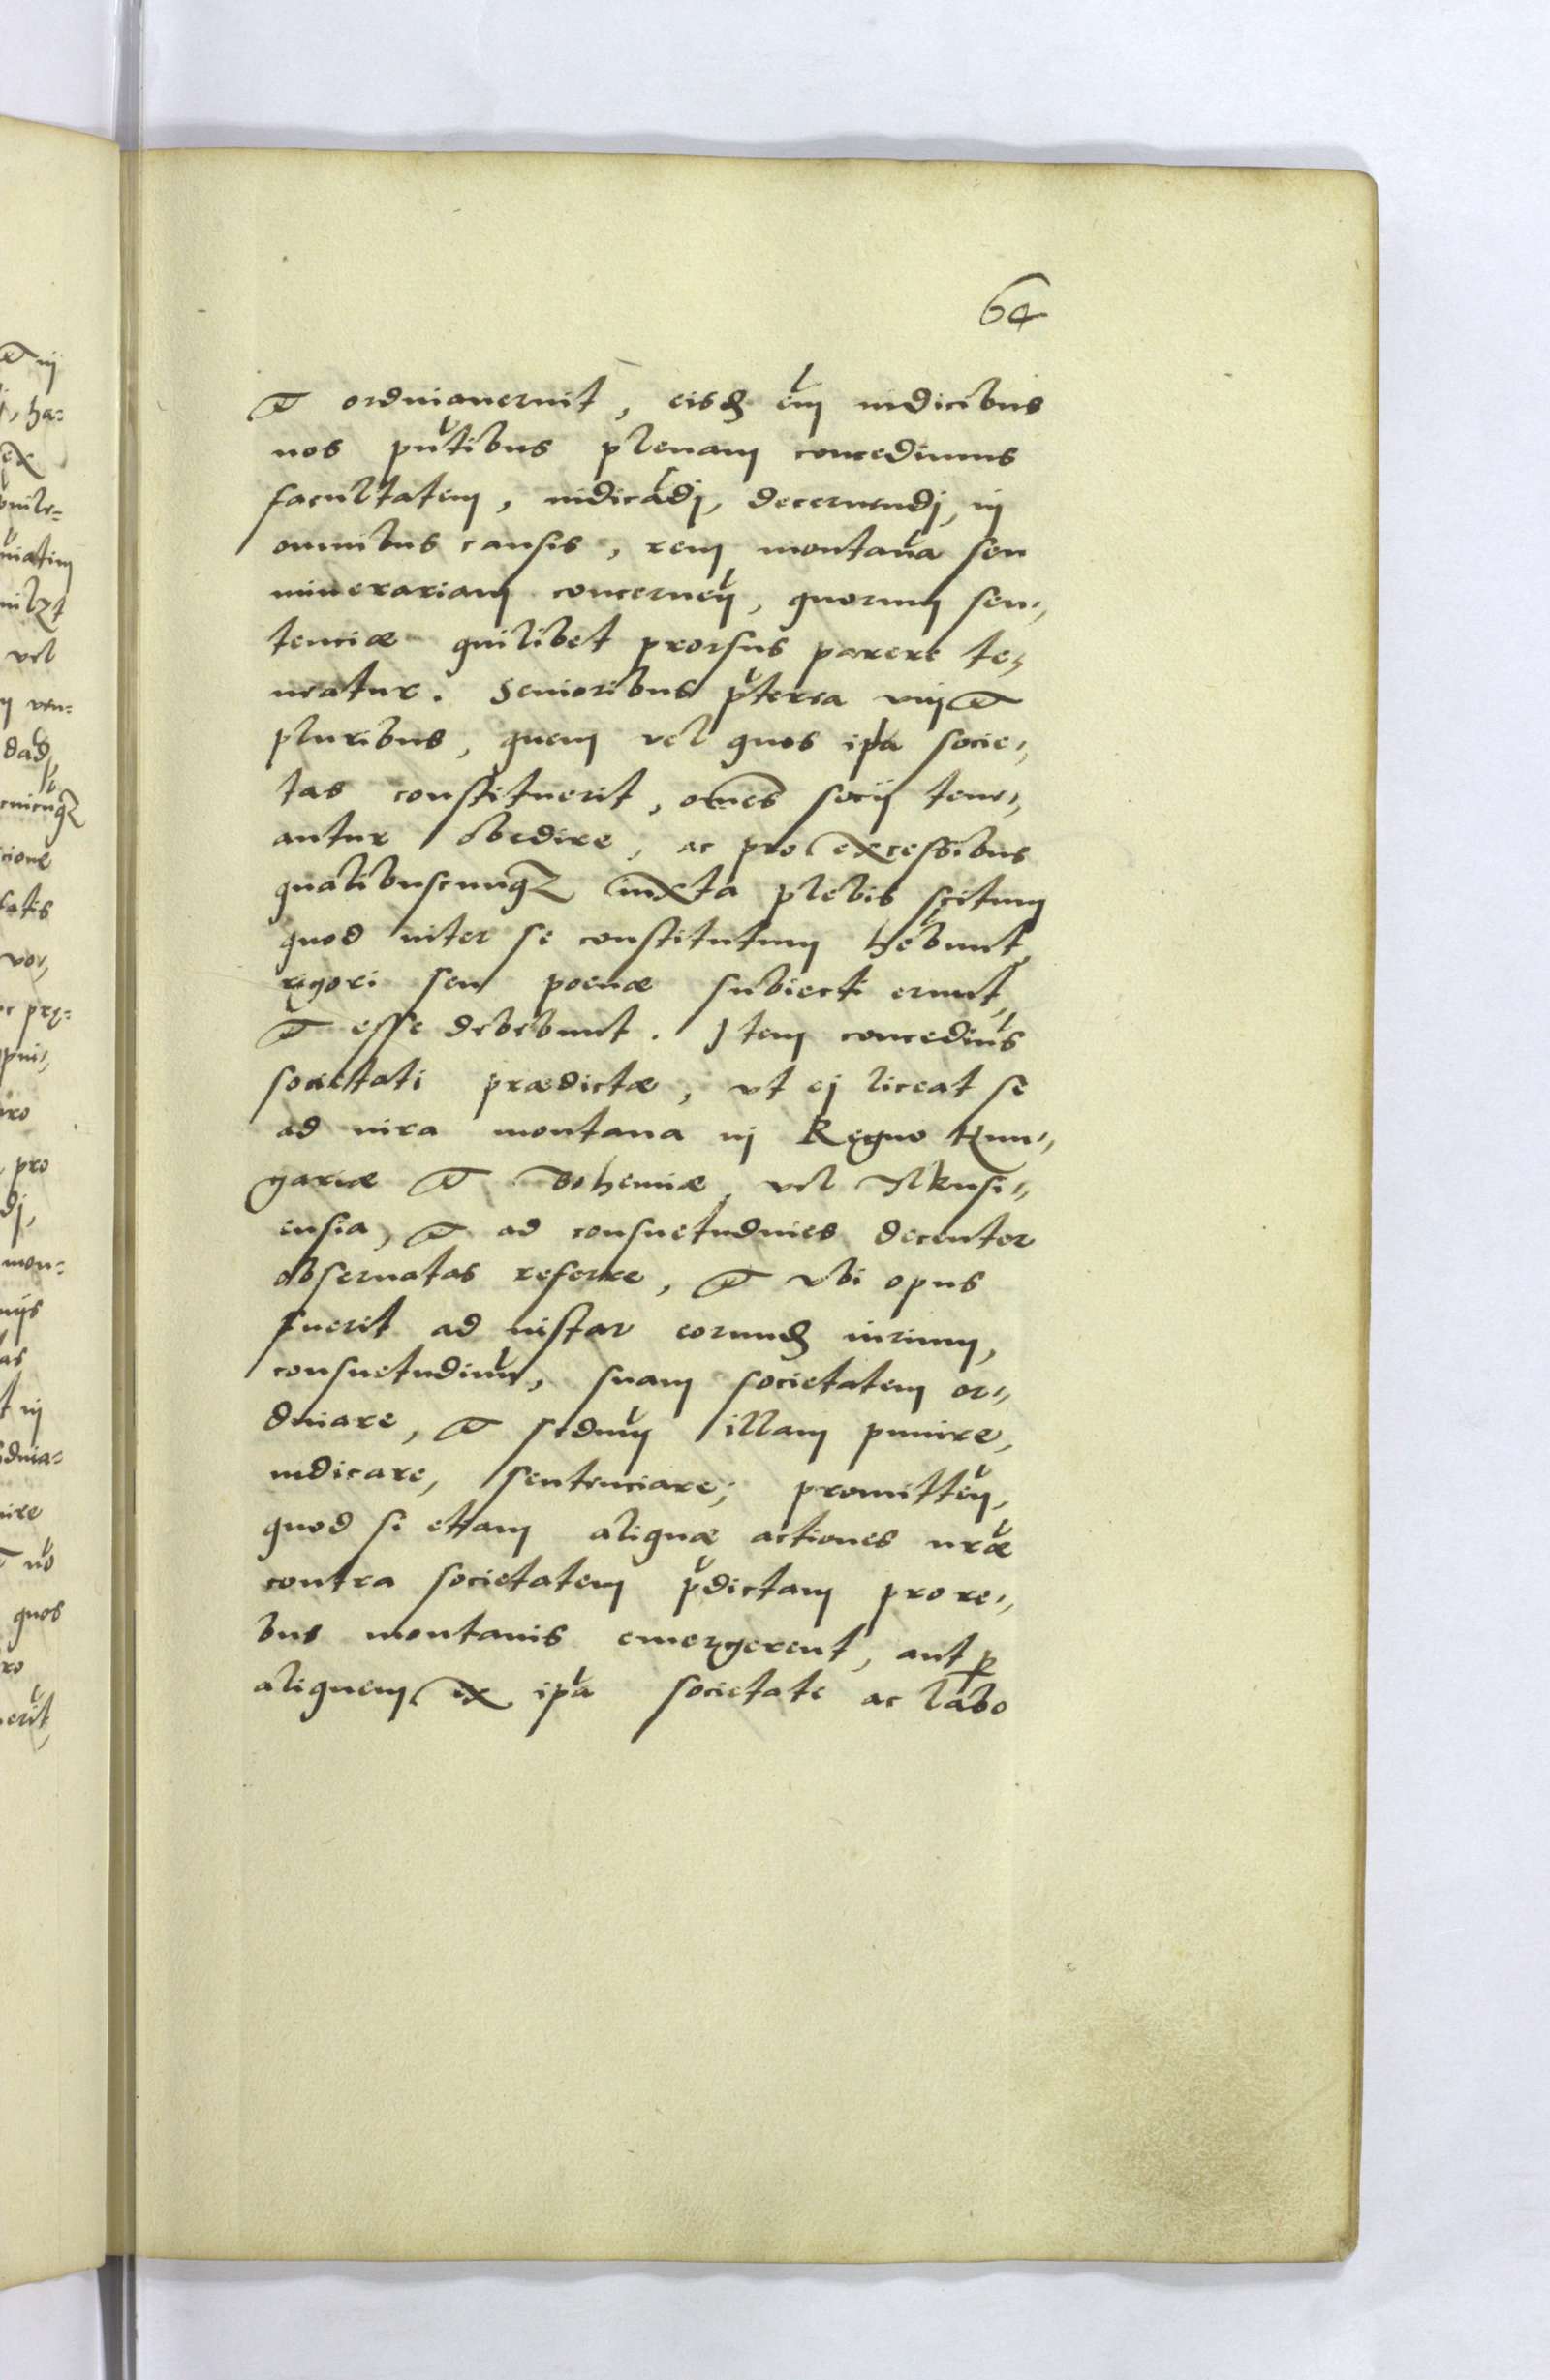 64
et ordinauerint, eisdẽ em̃ iudicibus
nos pñtibus plenam concedimus
facultatem, iudicãdj, decernendj, in
omnibus causis, rem montanã seu
minerariam conceruẽn, quorum sen„
tenciæ quilibet prorsus parere te„
neatur. Senioribus p̃terea vni et
pluribus, quem vel quos ip̃a socie„
tas constituerit, om̃es socij tene„
antur obedire, ac pro excessibus
qualibuscunq3 iuxta plebis scitum
quod inter se constitutum hẽbunt,
rigori seu poenæ subiecti erunt,
et esse debebunt. Item concedim̃s
societati prædictæ, vt ej liceat se
ad iura montana in Regno Hun„
gariæ et Bohemiæ, vel Ilkusi„
ensia, et ad consuetudines decenter
obseruatas referre, et vbi opus
fuerit ad instar eorundẽ iurium,
consuetudinũ, suam societatem or„
dinare, et secdũm illam punire,
iudicare, sentenciare; promittẽn,
quod si etiam aliquæ actiones nr̃æ
contra societatem p̃dictam pro re„
bus montanis emergerent, aut ꝑ
aliquem ex ip̃a societate ac labo